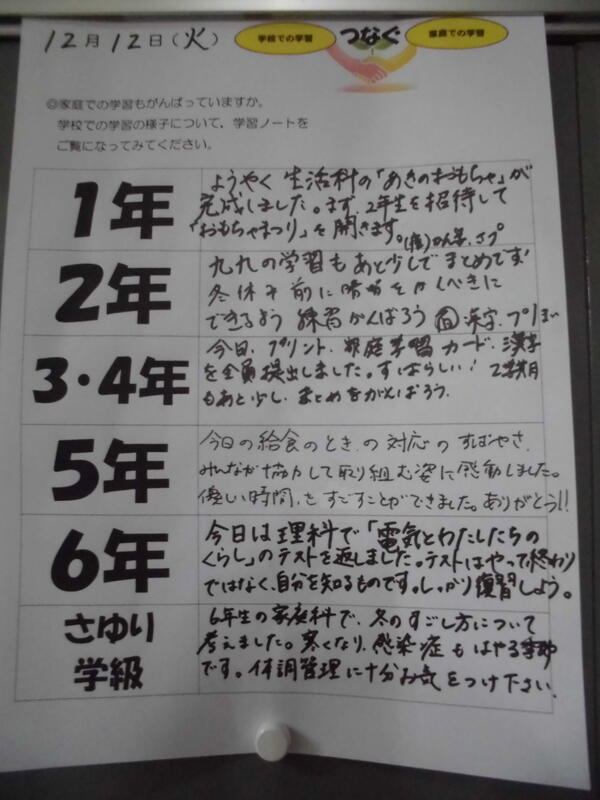 12月12日(火)
学校での学習
つなぐ
家庭での学習
◎家庭での学習もがんばっていますか。
学校での学習の様子について、学習ノートを
ご覧になってみてください。
1年
ようやく生活科の「あきのおもちゃ」が
完成しました。まず、2年生を招待して
「おもちゃまつり」を開きます。
2年
九九の学習もあと少しでまとめです!
冬休み前に暗唱をかんぺきに
できるよう練習がんばろう 漢字、プリント
3・4年
今日、プリント、家庭学習カード、漢字
を全員提出しました。すばらしい!2学期
もあと少し、まとめをがんばろう。
5年
今日の給食のとき、の対応のすばやさ、
みんなが協力して取り組む姿に感動しました。
優しい時間をすごすことができました。ありがとう!!
6年
今日は理科で「電気とわたしたちの
くらし」のテストを返しました。テストはやって終わり
ではなく、自分を知るものです。しっかり復習しよう。
さゆり
学級
6年生の家庭科で、冬のすごし方について
考えました。寒くなり、感染症もはやる季節
です。体調管理に十分お気をつけ下さい。